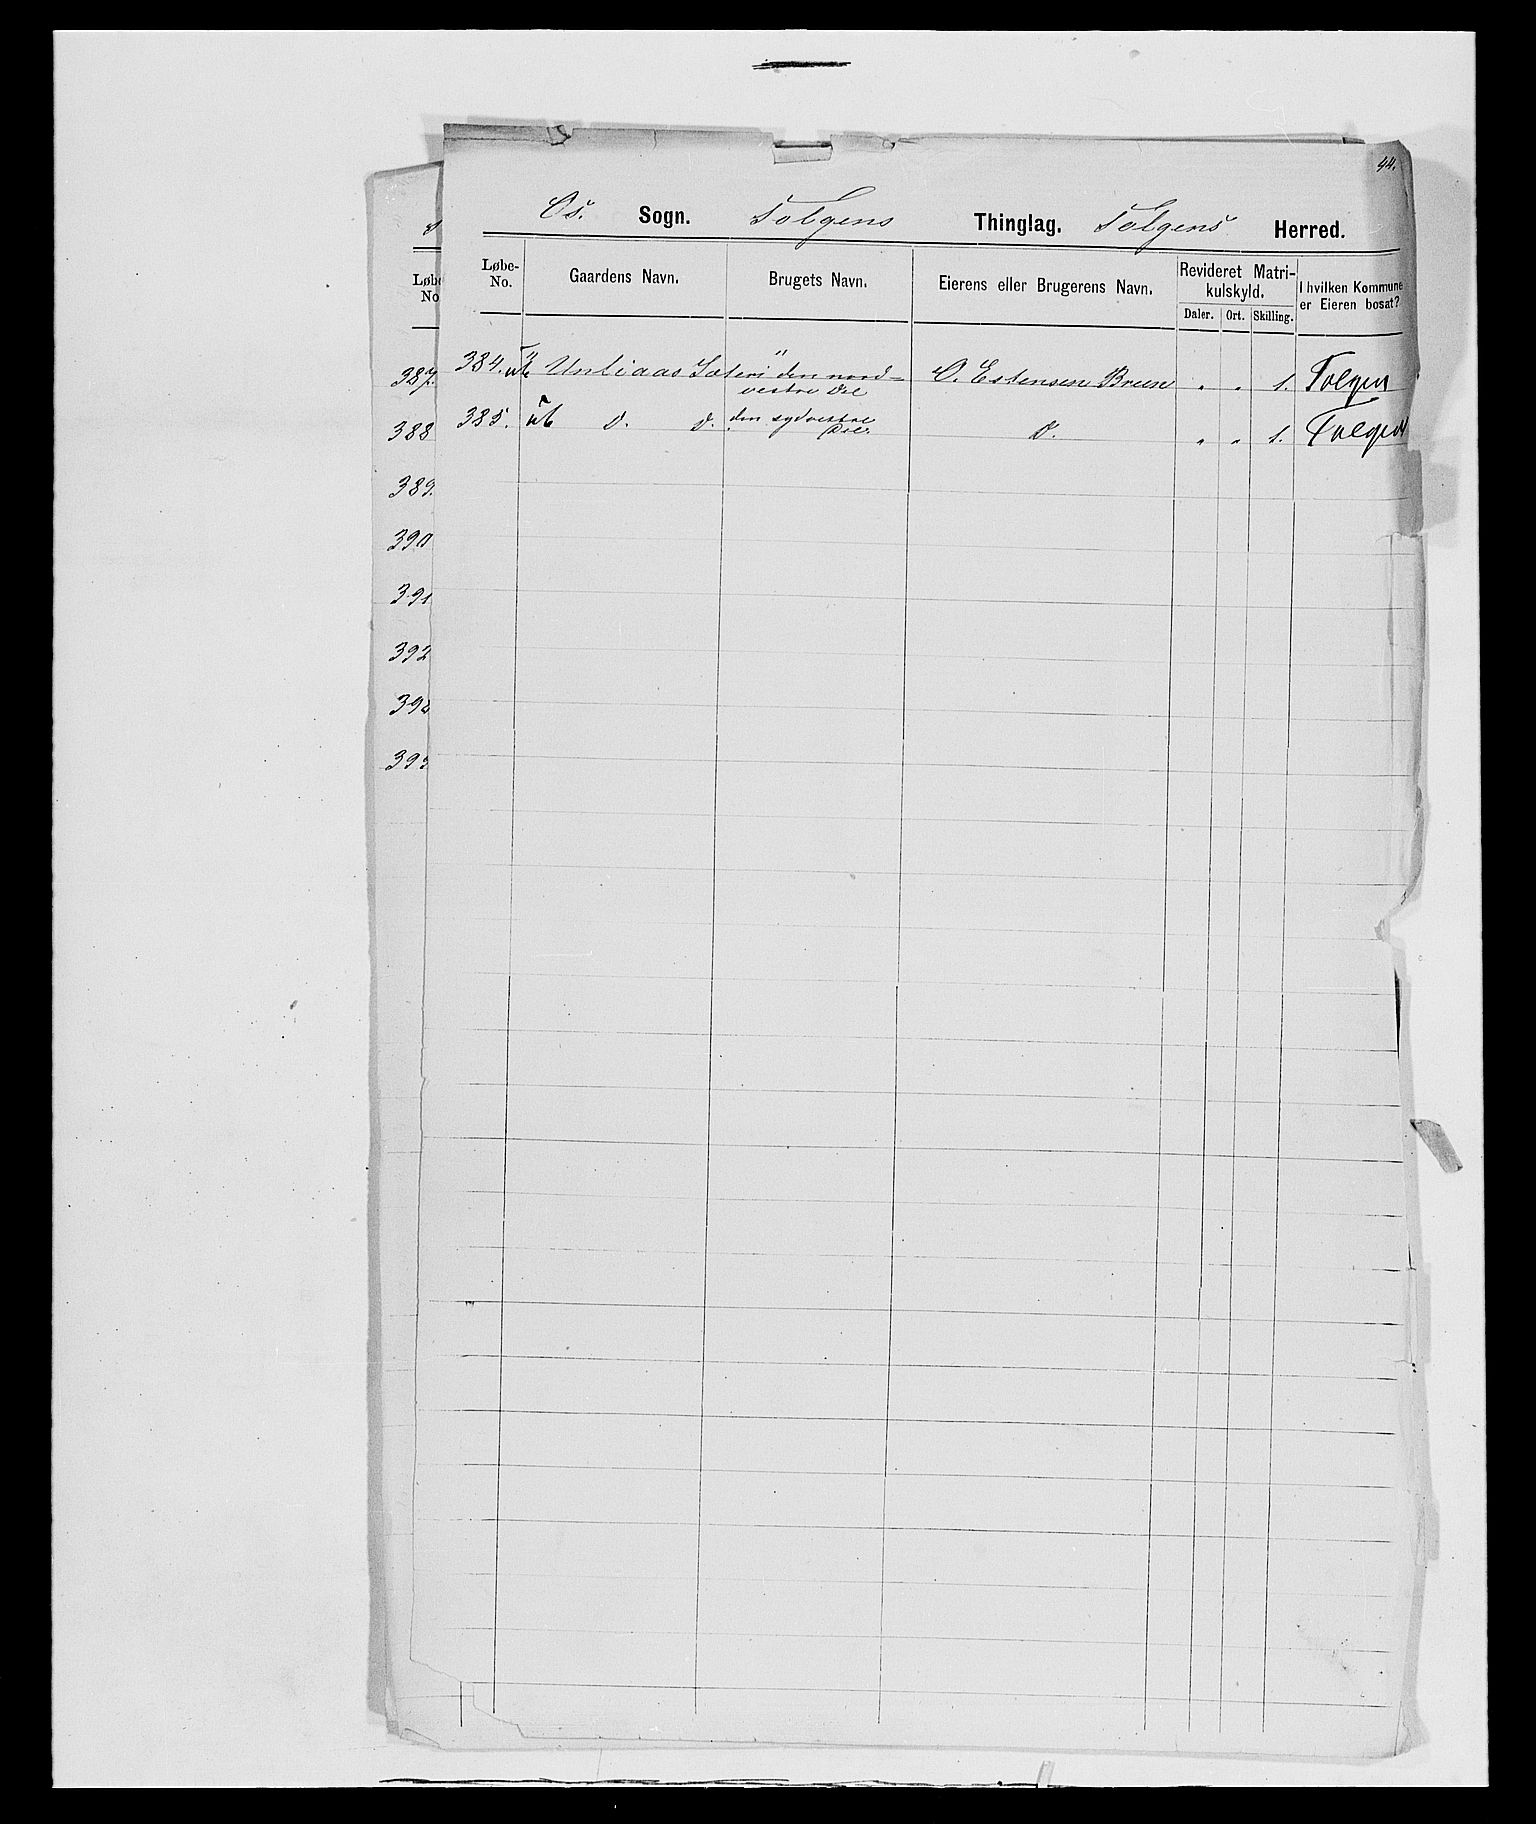 44.
Os. Sogn. Tolgens Thinglag. Tolgens Herred.
Løbe-No. Gaardens Navn. Brugets Navn. Eierens eller Brugerens Navn. Revideret Matrikulskyld. Daler. Ort. Skilling. I hvilken Kommune er Eieren bosat?
384. ub Unliaas Sæteri den nord-
vestre Del O. Estensen Bruun " " 1. Tolgen
385. ub d. d. den sydvestre
Del. d. " " 1. Tolgen
Løbe
No
387.
388
389.
390
391
392